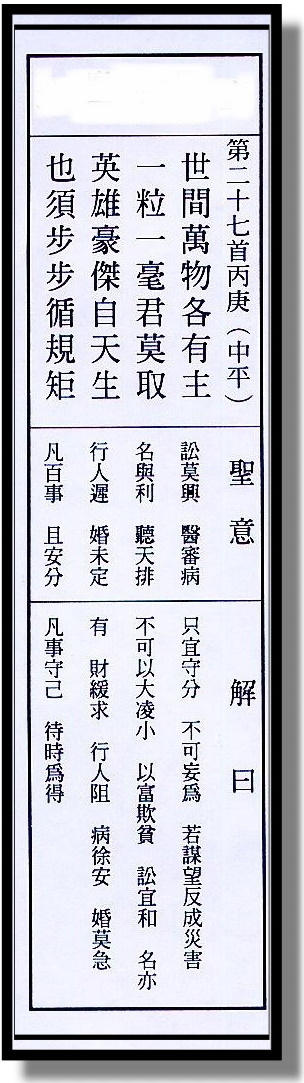 第二十七首丙庚（中平）
世間萬物各有主
一粒一毫君莫取
英雄豪傑自天生
也須步步循規矩
聖意
訟莫興 醫審病
名與利 聽天排
行人遲 婚未定
凡百事 且安分
解曰
只宜守分 不可妄為 若謀望反成災害
不可以大凌小 以富欺貧 訟宜和 名亦
有 財緩求 行人阻 病徐安 婚莫急
凡事守己 待時為得